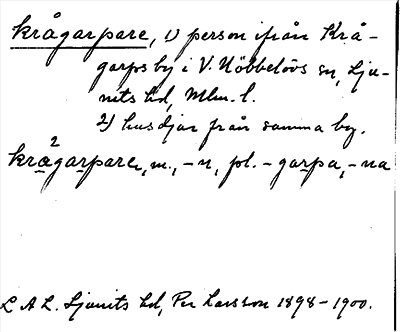 krågarpare, 1) person ifrån Krå-
garps by i V. Nöbbelövs sn, Lju-
nits hd, Mlm. l.
2) husdjur från samma by.
kra²garpare, m., -n, pl. -garpa, -na
L A L. Ljunits hd, Per Larsson 1898-1900.